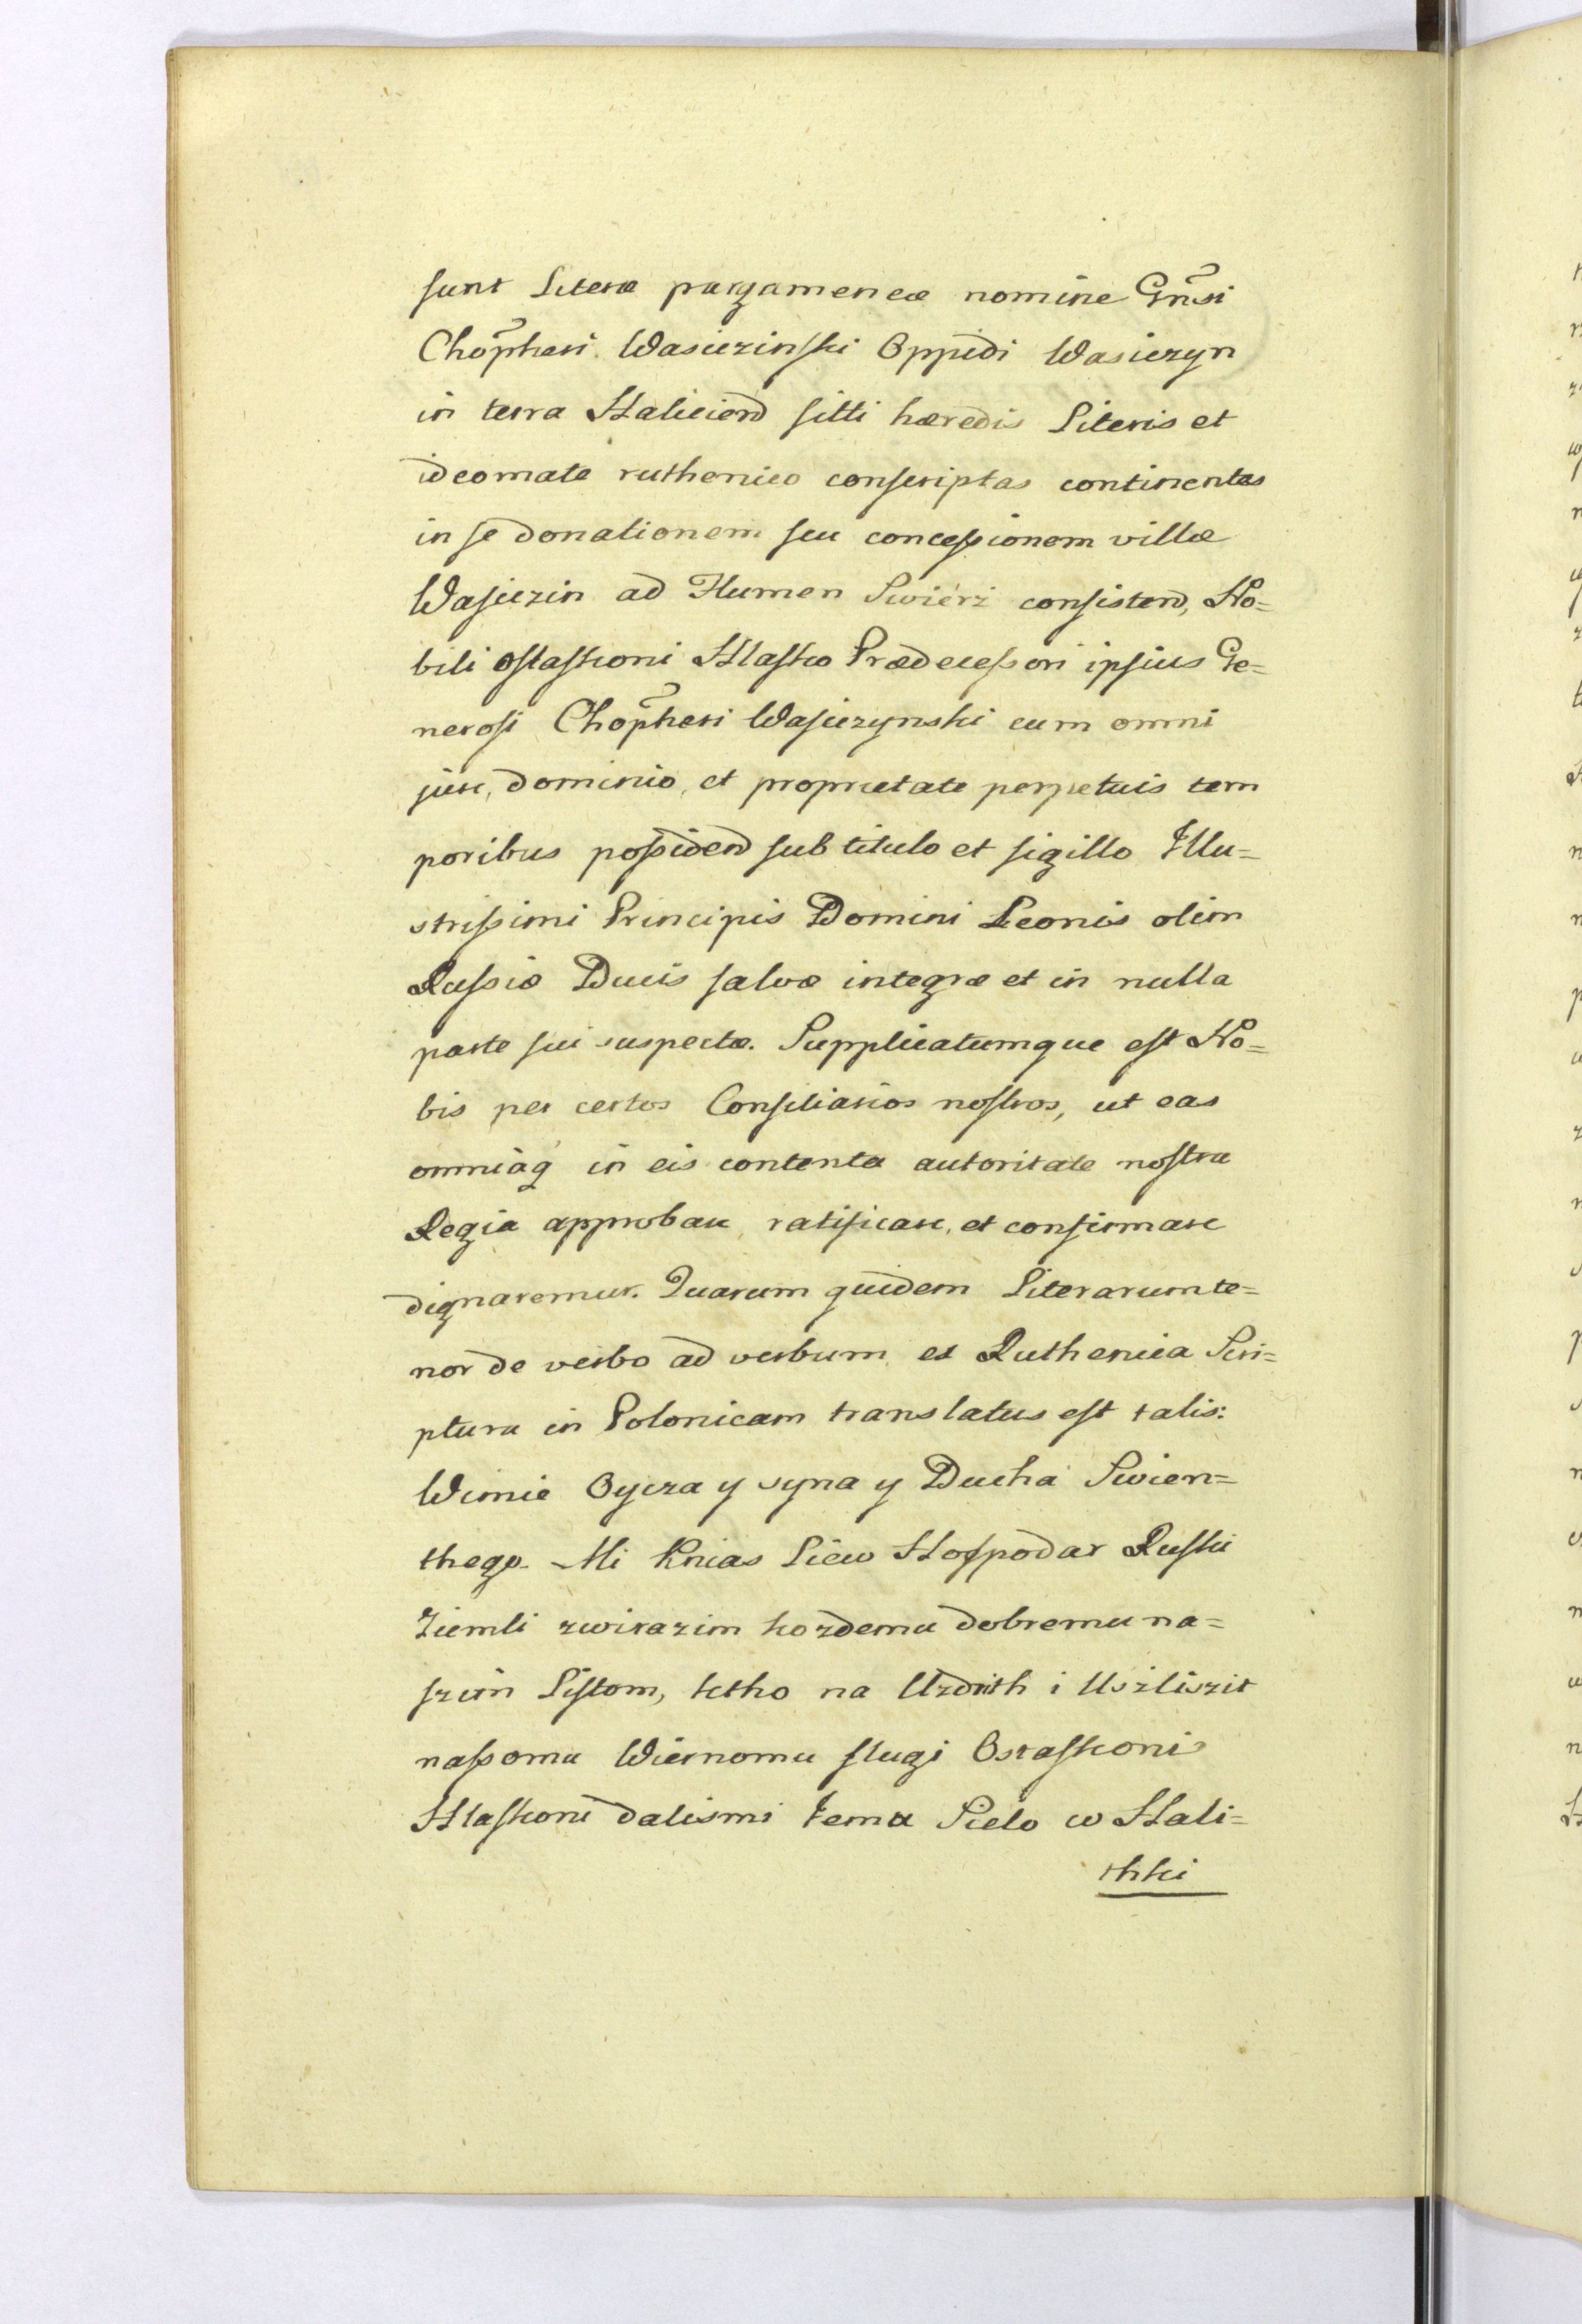 sunt Literæ pargameneæ nomine Gnr̃si
Chop̃heri Wasiczinski Oppidi Wasiczyn
in terra Haliciend sitti hæredis Literis et
ideomate ruthenico conscriptas continentes
in se donationem seu concessionem villæ
Wasiczin ad Flumen Swierz consistend, No=
bili Ostaskoni Hlasko Prædecessori ipsius Ge=
nerosi Chop̃heri Wasiczynski cum omni
jure, dominio, et proprietate perpetuis tem
poribus possidend sub titulo et sigillo Illu=
strissimi Principis Domini Leonis olim
Russiæ Ducis salvæ integræ et in nulla
parte sui suspectæ. Supplicatumque est No=
bis per certos Consiliarios nostros, ut eas
omniaq́ in eis contenta autoritate nostra
Regia approbare, ratificare, et confirmare
dignaremur. Quarum quidem Literarum te=
nor de verbo ad verbum ex Ruthenica Scri=
ptura in Polonicam translatus est talis:
Wimie Oycza y syna y Ducha Swien=
thego. Mi Knias Liew Hospodar Ruski
Ziemli zwirazim kozdemu dobremu na=
szim Listom, ketho na Uzdrith i Uszliszit
nassomu Wiernomu slugi Ostaskoni
Hlaskoni dalismi temu Sielo w Hali=
thki